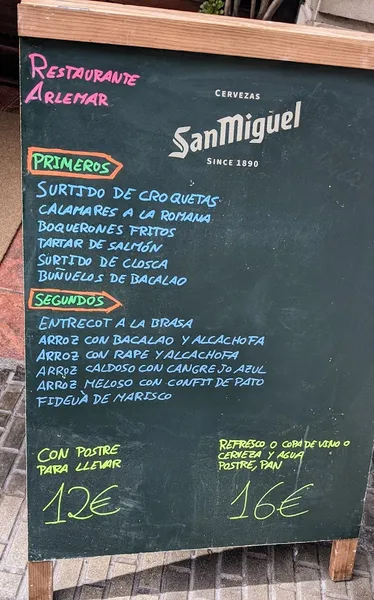 RESTAURANTE
ARLEMAR
CERVEZAS
SanMiguel
SINCE 1890
PRIMEROS
SURTIDO DE CROQUETAS
CALAMARES A LA ROMANA
BOQUERONES FRITOS
TARTAR DE SALMÓN
SURTIDO DE CLOSCA
BUÑUELOS DE BACALAO
SEGUNDOS
ENTRECOT A LA BRASA
ARROZ CON BACALAO Y ALCACHOFA
ARROZ CON RAPE Y ALCACHOFA
ARROZ CALDOSO CON CANGREJO AZUL
ARROZ MELOSO CON CONFIT DE PATO
FIDEUÀ DE MARISCO
CON POSTRE
PARA LLEVAR
12€
REFRESCO O COPA DE VINO O
CERVEZA Y AGUA
POSTRE, PAN
16€